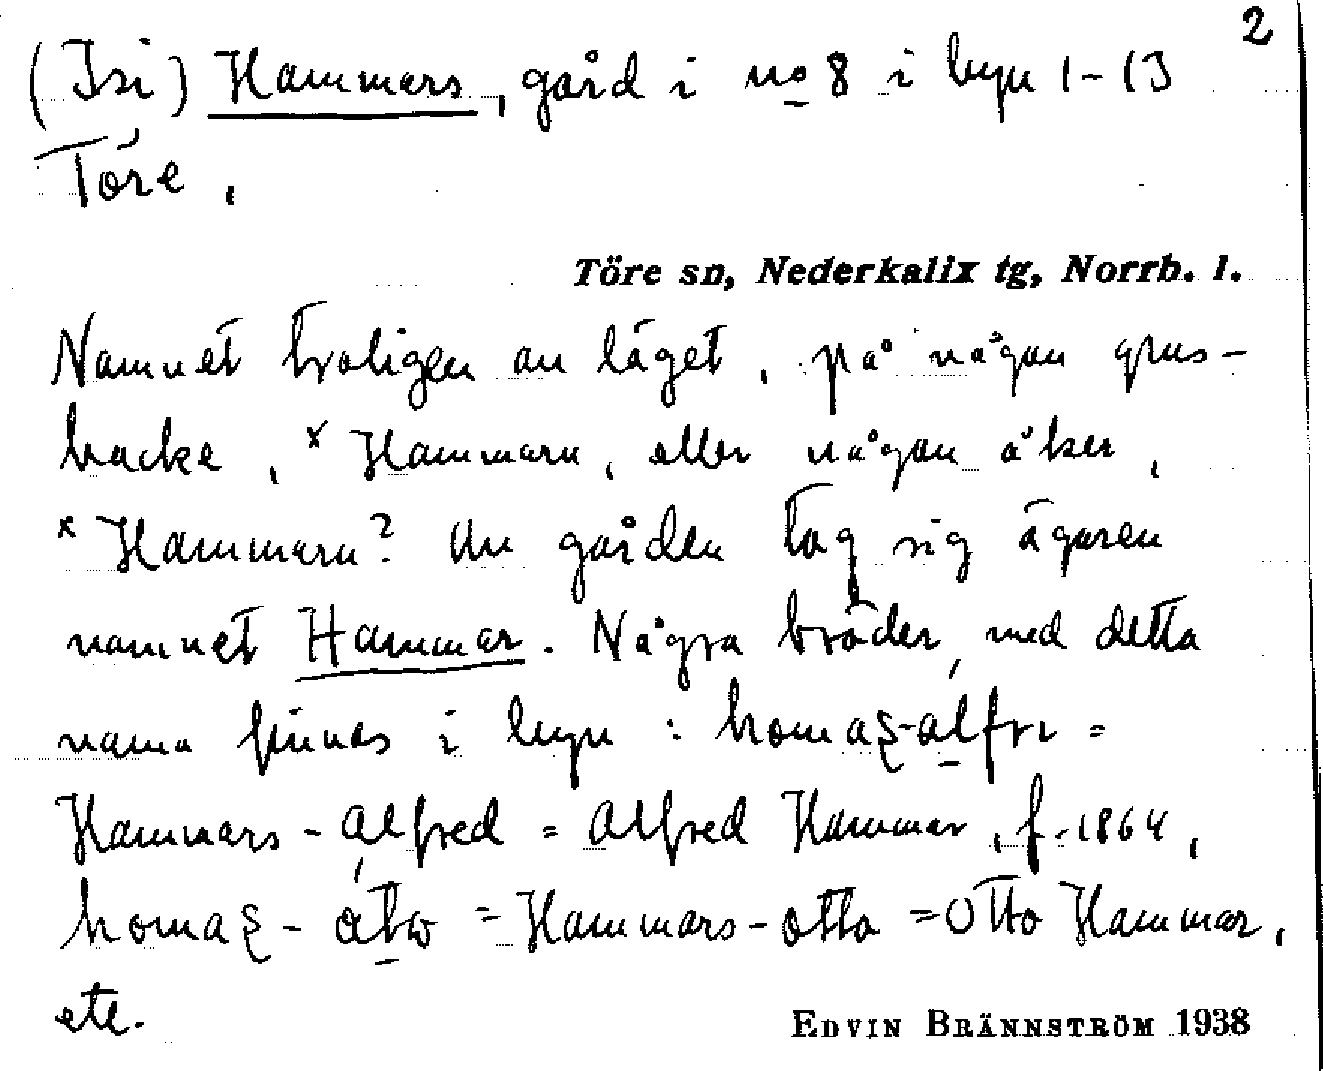 2
(Isi) Hammars, gård i no 8 i byn 1-13
Töre,
Töre sn, Nederkalix tg, Norrb. l.
Namnet troligen av läget, på någon grus-
backe, *Hammarn, eller någon åker,
*Hammarn? Av gården tog sig ägaren
namnet Hammar. Några bröder med detta
namn finnas i byn : homaʂ-álfrι =
Hammars-Alfred = Alfred Hammar, f. 1864,
homaʂ- = Hammars-Otto = Otto Hammar,
etc.
EDVIN BRÄNNSTRÖM 1938